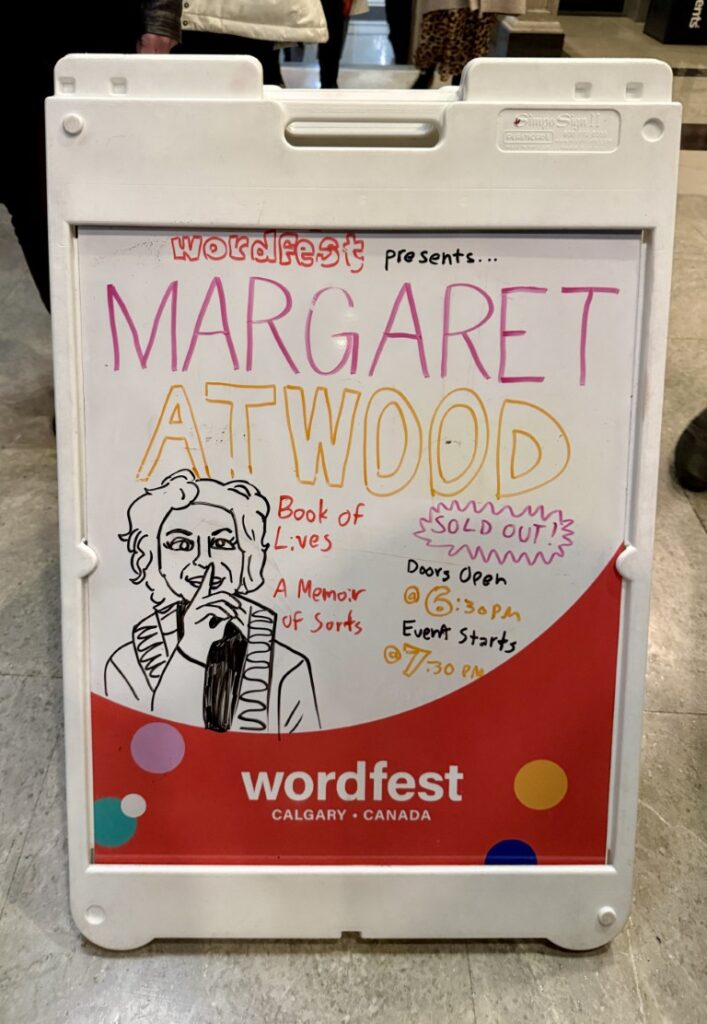 wordfest presents...
MARGARET
ATWOOD
Book of
Lives
A Memoir
of Sorts
SOLD OUT!
Doors Open
@ 6:30 PM
Event Starts
@ 7:30 PM
wordfest
CALGARY • CANADA